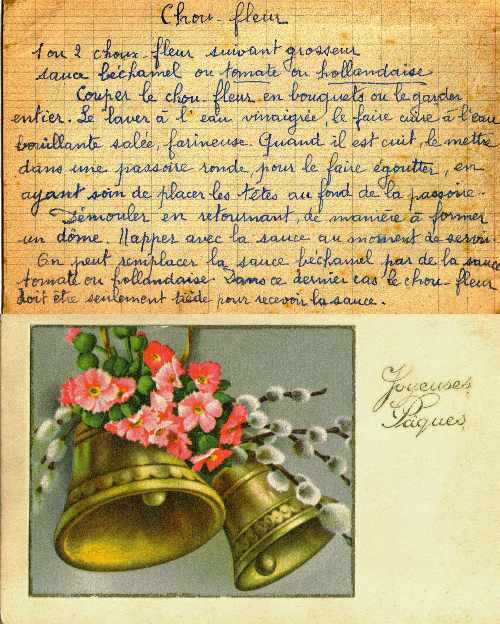 Chou-fleur
1 ou 2 choux-fleur suivant grosseur
sauce béchamel ou tomate ou hollandaise
Couper le chou-fleur en bouquets ou le garder
entier. Le laver à l'eau vinaigrée, le faire cuire à l'eau
bouillante salée, farineuse. Quand il est cuit, le mettre
dans une passoire ronde pour le faire égoutter, en
ayant soin de placer les têtes au fond de la passoire.
Démouler en retournant, de manière à former
un dôme. Napper avec la sauce au moment de servir.
On peut remplacer la sauce béchamel par de la sauce
tomate ou hollandaise. Dans ce dernier cas le chou-fleur
doit être seulement tiède pour recevoir la sauce.
Joyeuses
Pâques